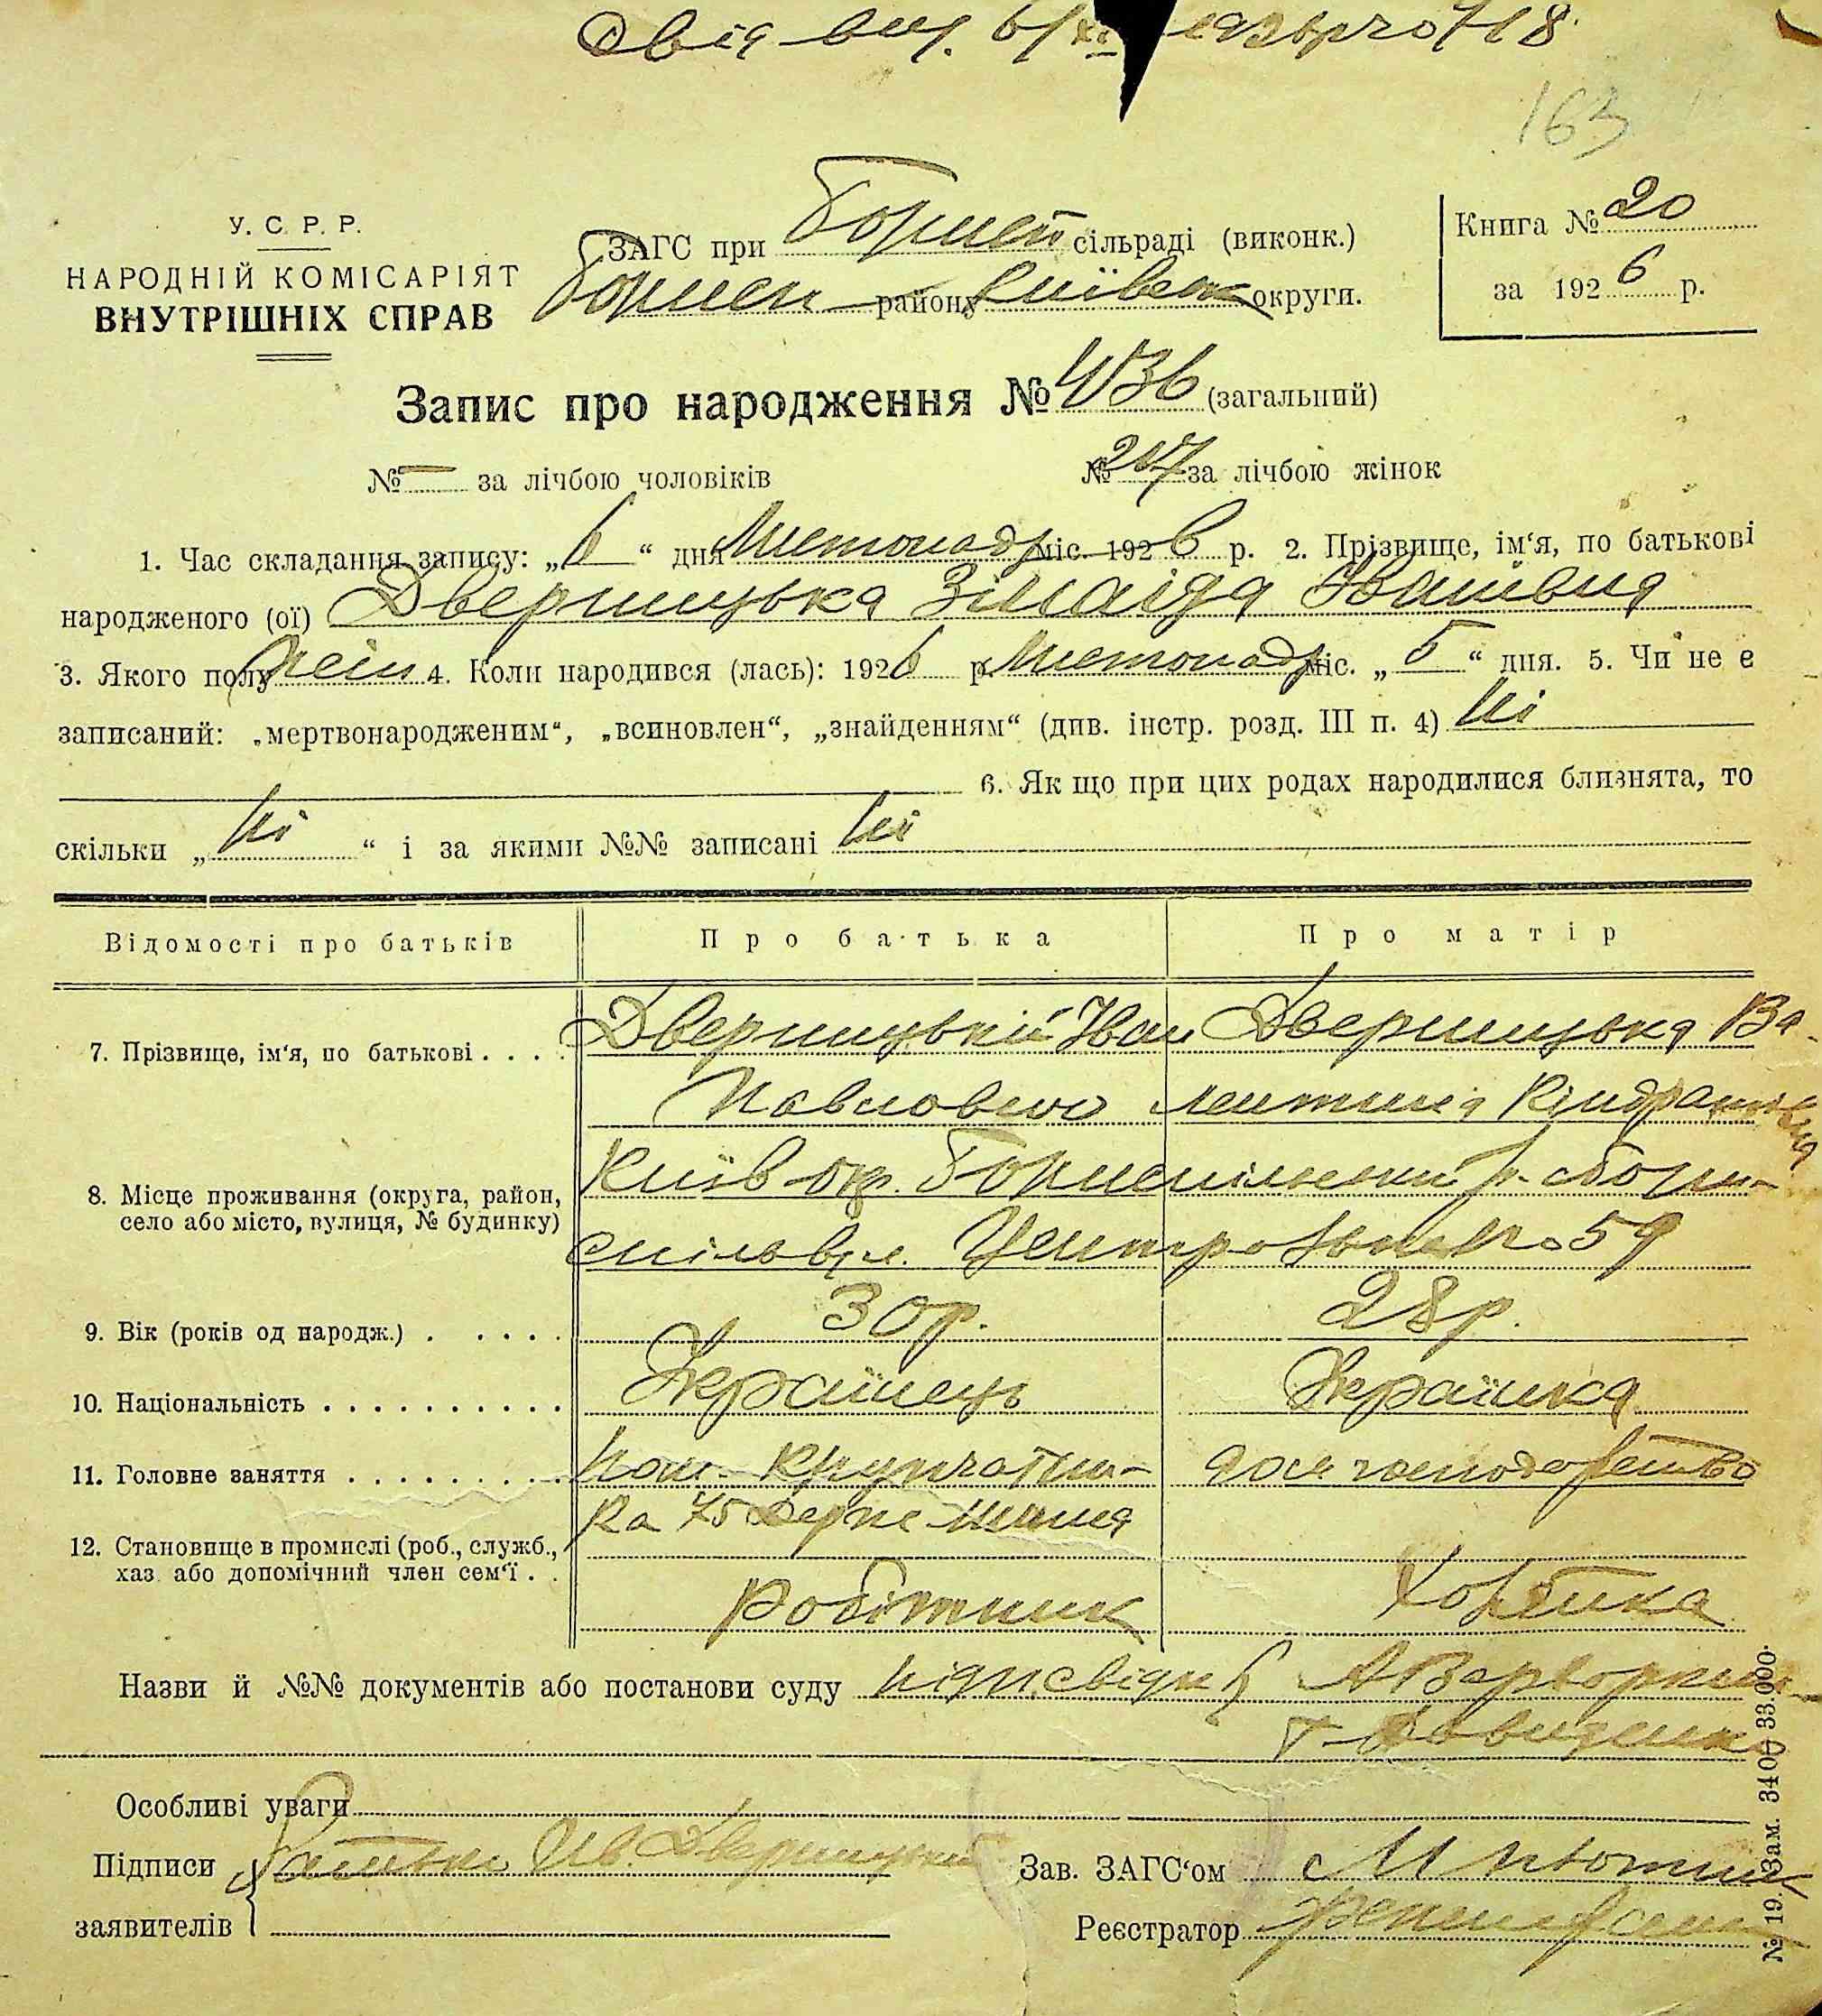 163
У. С. Р. Р.
НАРОДНІЙ КОМІСАРІЯТ
ВНУТРІШНІХ СПРАВ
ЗАГС при Борисп сільраді (виконк.)
району Київськ округи.
Книга № 20
за 1926 р.
Запис про народження № 436 (загальний)
№ — за лічбою чоловіків № 217 за лічбою жінок
1. Час складання запису: „6“ дня Листопада міс. 1926 р. 2. Прізвище, ім'я, по батькові
народженого (ої) Дверницька Зінаїда Іванівна
3. Якого полу жін 4. Коли народився (лась): 1926 р. Листопада міс. „5“ дня. 5. Чи не є
записаний: „мертвонародженим“, „всиновлен“, „знайденням“ (див. інстр. розд. III п. 4) Ні
6. Як що при цих родах народилися близнята, то
скільки „ Ні “ і за якими №№ записані Ні
Відомості про батьків Про батька Про матір
7. Прізвище, ім'я, по батькові . . . . Дверницький Іван Дверницька Ва-
Павлович лентина Кіндратівна
8. Місце проживання (округа, район, Київ окр. Бориспільський р. с Бори-
село або місто, вулиця, № будинку) спіль вул. Центральна № 59
9. Вік (років од народж.) . . . . . 30 р. 28 р.
10. Національність . . . . . . . . . . Українець Українка
11. Головне заняття . . . . . . . . . дом господарство
ка 75 Держ
12. Становище в промислі (роб., служб.,
хаз. або допомічний член сем'ї . . робітник
Назви й №№ документів або постанови суду
Особливі уваги
Підписи Батько Ив. Дверницкий Зав. ЗАГС'ом
заявителів Реєстратор
№ 19. Зам. 3400 33.000.